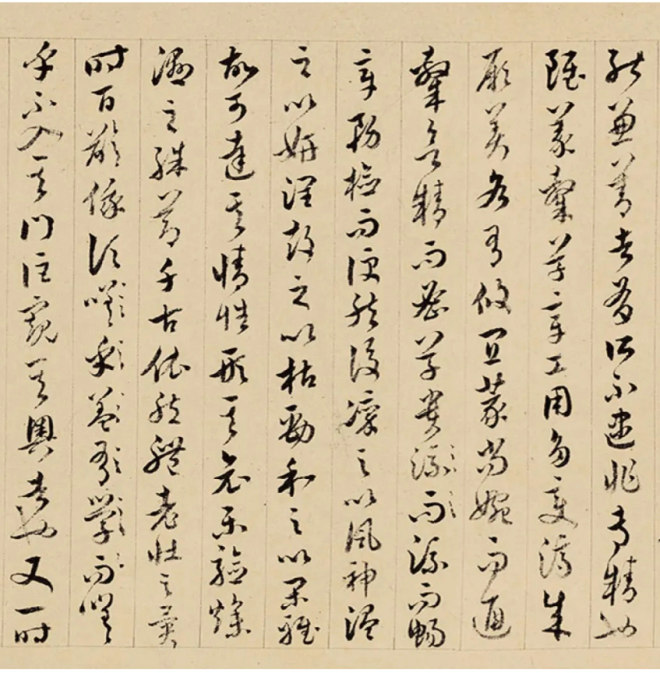 能兼善者有所不逮非專精也
雖篆隸草章工用多變濟成
厥美各有攸宜篆尚婉而通
隸欲精而密草貴流而流而暢
章務檢而便然後凜之以風神溫
之以妍潤鼓之以枯勁和之以閑雅
故可達其情性形其哀樂驗燥
濕之殊節千古依然體老壯之異
時百齡俄頃學而嗟
乎不入其門詎窺其奧者也又一時